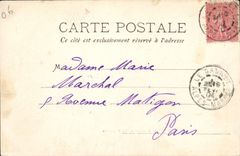 06
CARTE POSTALE
Ce côté est exclusivement réservé à l'adresse
Madame Marie
Marchal
9 Avenue Matignon
Paris